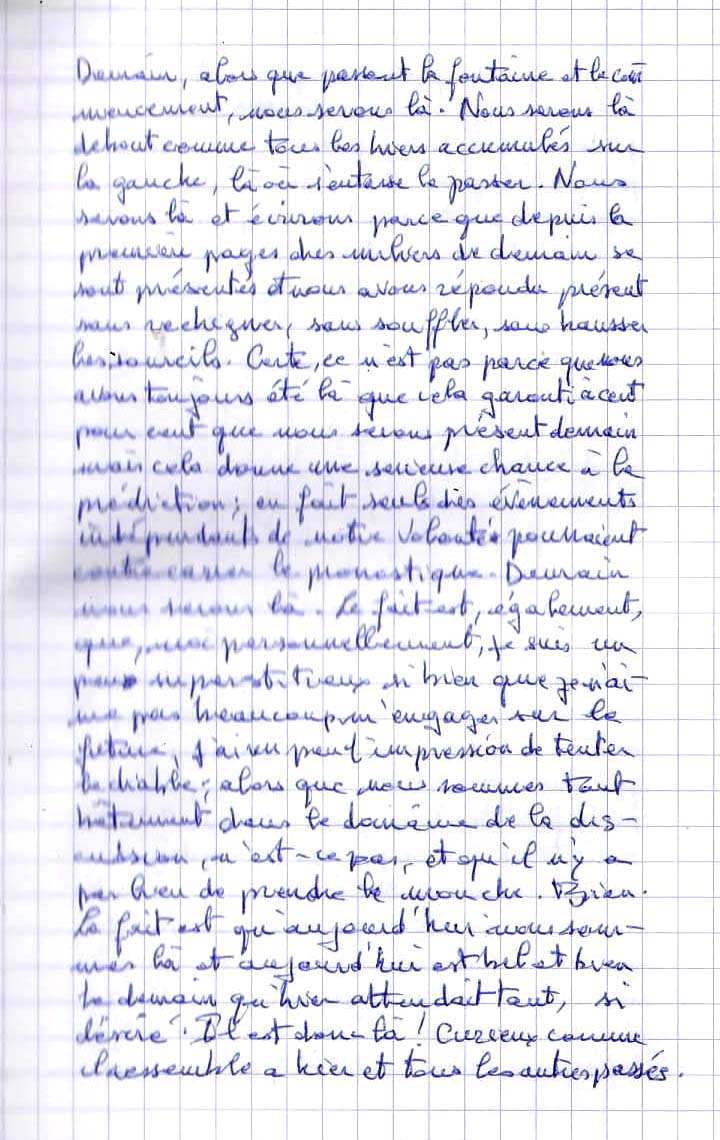 Demain, alors que passent la fontaine et le com
mencement, nous serons là. Nous serons là
debout comme tous les hiers accumulés sur
la gauche, là où s'entasse le passer. Nous
serons là et écrirons parce que depuis la
première pages des milliers de demain se
sont présentés et nous avons répondu présent
sans rechigner, sans souffler, sans hausser
les sourcils. Certe, ce n'est pas parce que nous
avons toujours été là que cela garanti à cent
pour cent que nous serons présent demain
mais cela donne une serieuse chance à la
prédiction ; en fait seuls des évènements
indépendants de notre volonté pourraient
contrecarrer le pronostique. Demain
nous serons là. Le fait est, également,
que, moi personnellement, je suis un
peu superstitieux si bien que je n'ai-
me pas beaucoup m'engager sur le
future, j'ai un peu l'impression de tenter
le diable ; alors que nous sommes tout
bêtement dans le domaine de la dis-
cussion, n'est-ce pas, et qu'il n'y a
pas lieu de prendre la mouche. Bien.
Le fait est qu'aujourd'hui nous som-
mes là et aujourd'hui est bel et bien
le demain qu'hier attendait tant, si
désiré. Il est donc là ! Curieux comme
il ressemble a hier et tous les autres passés.